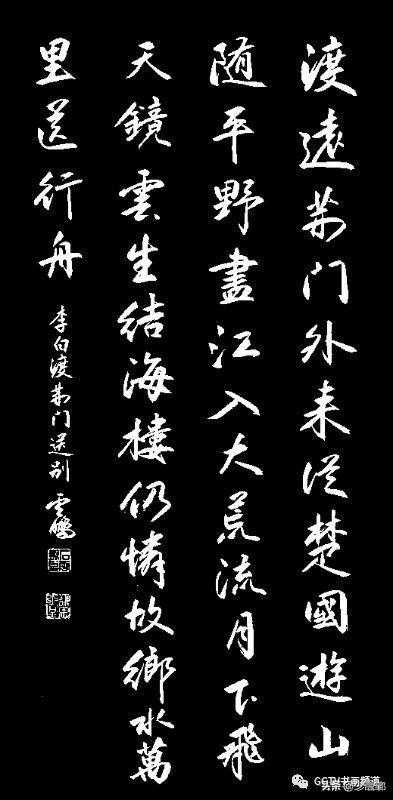 渡遠荆门外来從楚國遊山
随平野盡江入大荒流月下飛
天鏡雲生结海樓仍憐故鄉水萬
里送行舟
李白渡荆门送别 雲鹏
CCTV书画频道
头条